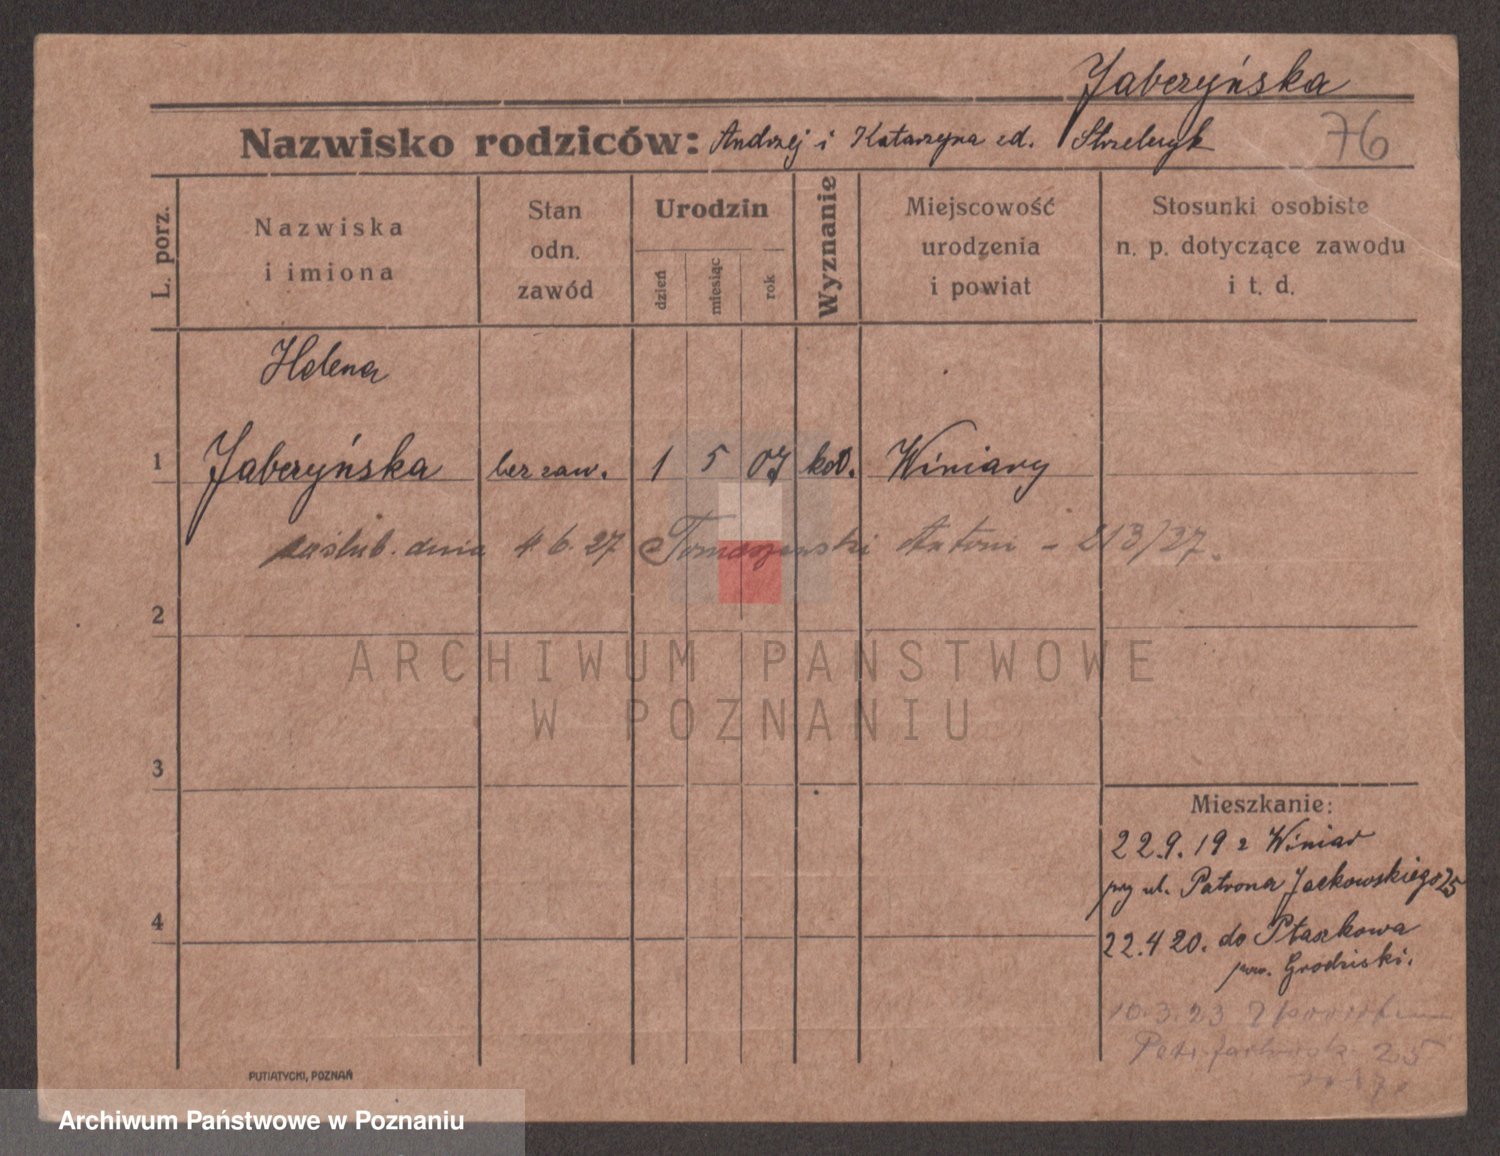 Jaberzyńska
Nazwisko rodziców: Andrzej i Katarzyna zd. Strzelczyk
76
L. porz.
Nazwiska
i imiona
Stan
odn.
zawód
Urodzin
dzień
miesiąc
rok
Wyznanie
Miejscowość
urodzenia
i powiat
Stosunki osobiste
n. p. dotyczące zawodu
i t. d.
Helena
1 Jaberzyńska bez zaw. 1 5 07 kat. Winiary
zaślub. dnia 4 6. 27 Tomaszewski Antoni - 213/27.
2
ARCHIWUM PAŃSTWOWE
W POZNANIU
3
Mieszkanie:
22.9.19 z Winiar
przy ul. Patrona Jackowskiego 25
4
22.4 20. do Ptaszkowa
pow. Grodziski.
10.3.23 z
25
PUTIATYCKI, POZNAŃ
Archiwum Państwowe w Poznaniu